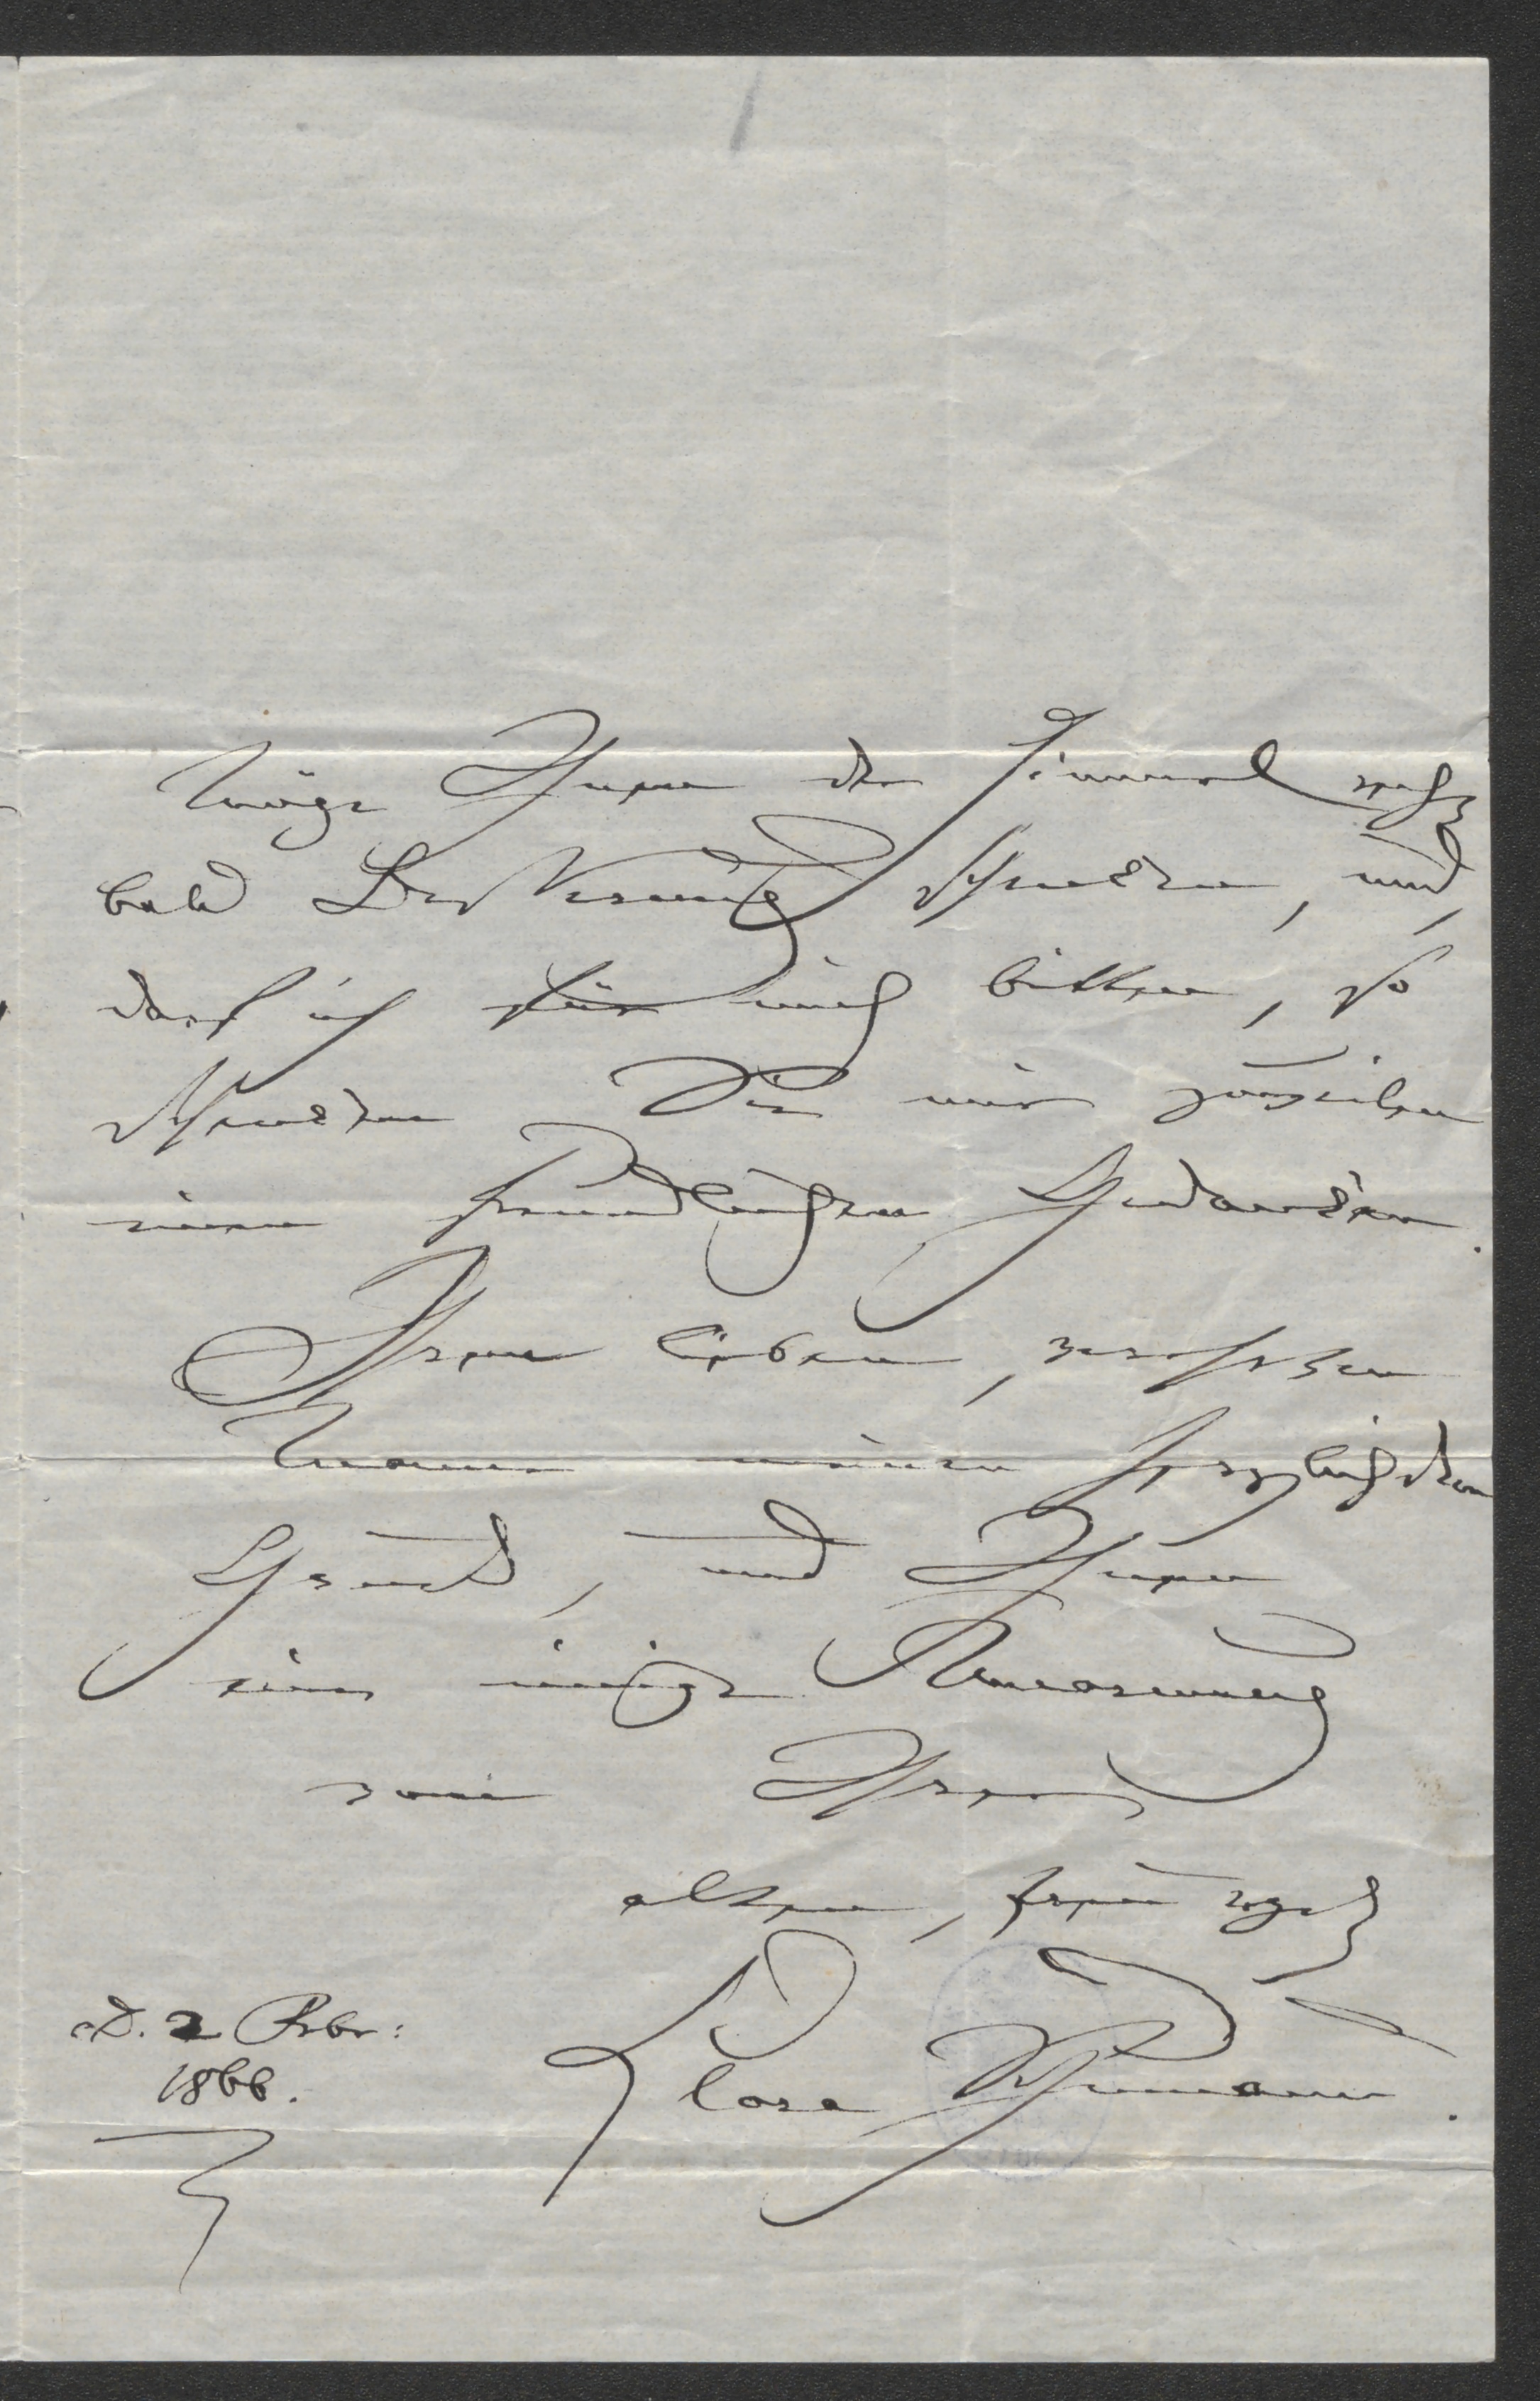 Möge Ihnen der Himmel recht
bald Besserung schenken, und,
darf ich für mich bitten, so
schenken Sie mir zuweilen
einen freundlichen Gedanken.
Ihrem lieben, verehrten
Manne meinen herzlichsten
Gruß, und Ihnen
eine innige Umarmung
von Ihrer
alten, treu erg
Clara Schumann.
d. 2 Febr:
1866.